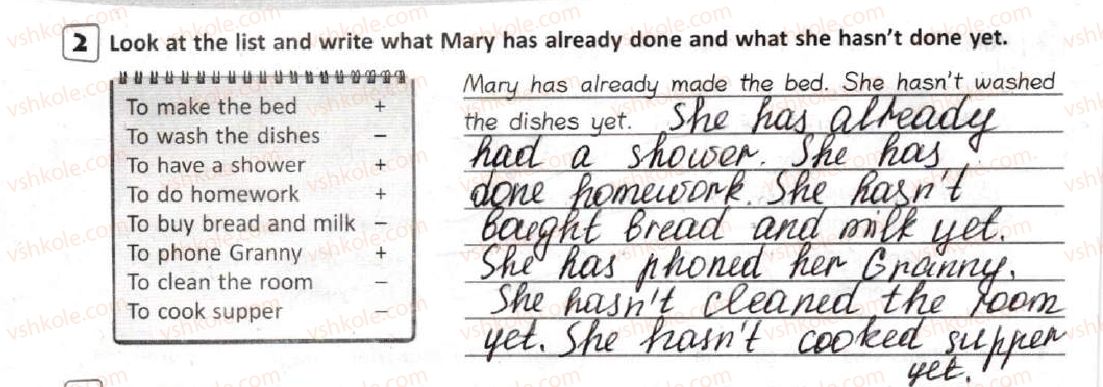 2 Look at the list and write what Mary has already done and what she hasn't done yet.
To make the bed +
To wash the dishes −
To have a shower +
To do homework +
To buy bread and milk −
To phone Granny +
To clean the room −
To cook supper −
Mary has already made the bed. She hasn't washed
the dishes yet. She has already
had a shower. She has
done homework. She hasn't
baught bread and milk yet.
She has phoned her Granny.
She hasn't cleaned the room
yet. She hasn't cooked supper
yet.
vshkole.com